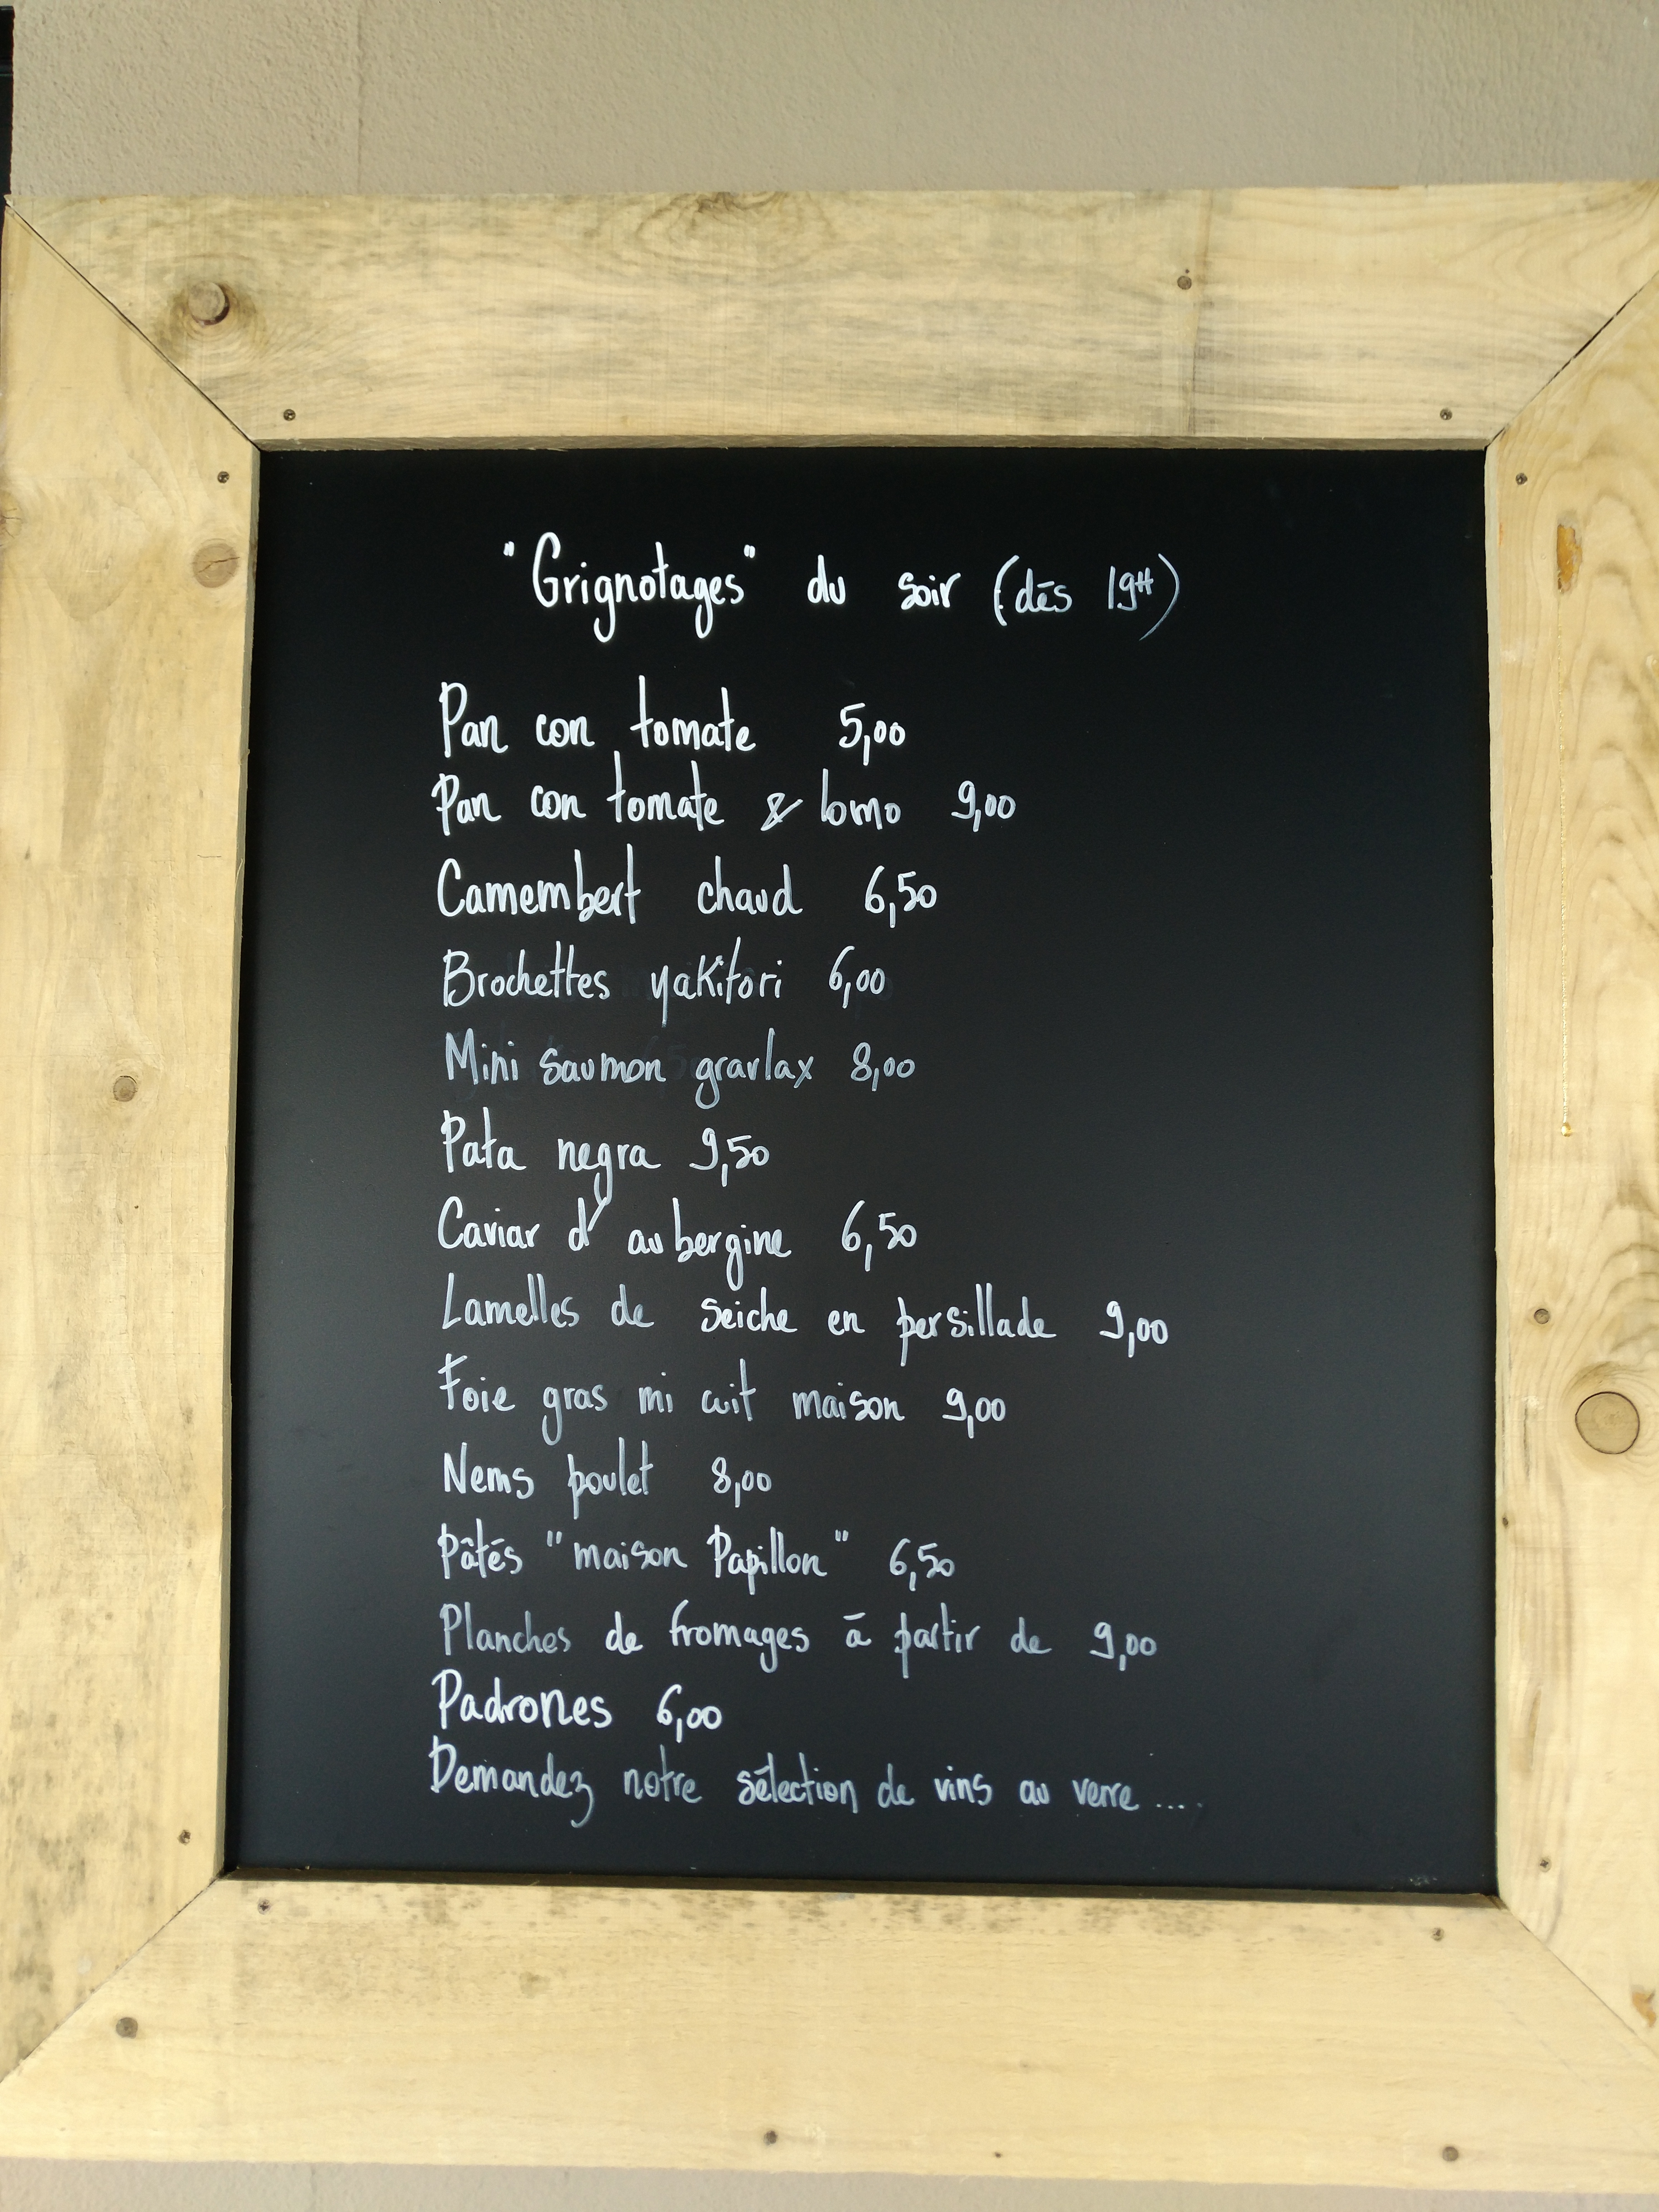 "Grignotages" du soir (dès 19H)
Pan con tomate 5,00
Pan con tomate & lomo 9,00
Camembert chaud 6,50
Brochettes yakitori 6,00
Mini saumon gravlax 8,00
Pata negra 9,50
Caviar d'aubergine 6,50
Lamelles de seiche en persillade 9,00
Foie gras mi cuit maison 9,00
Nems poulet 8,00
Pâtés "maison Papillon" 6,50
Planches de fromages à partir de 9,00
Padrones 6,00
Demandez notre sélection de vins au verre ....